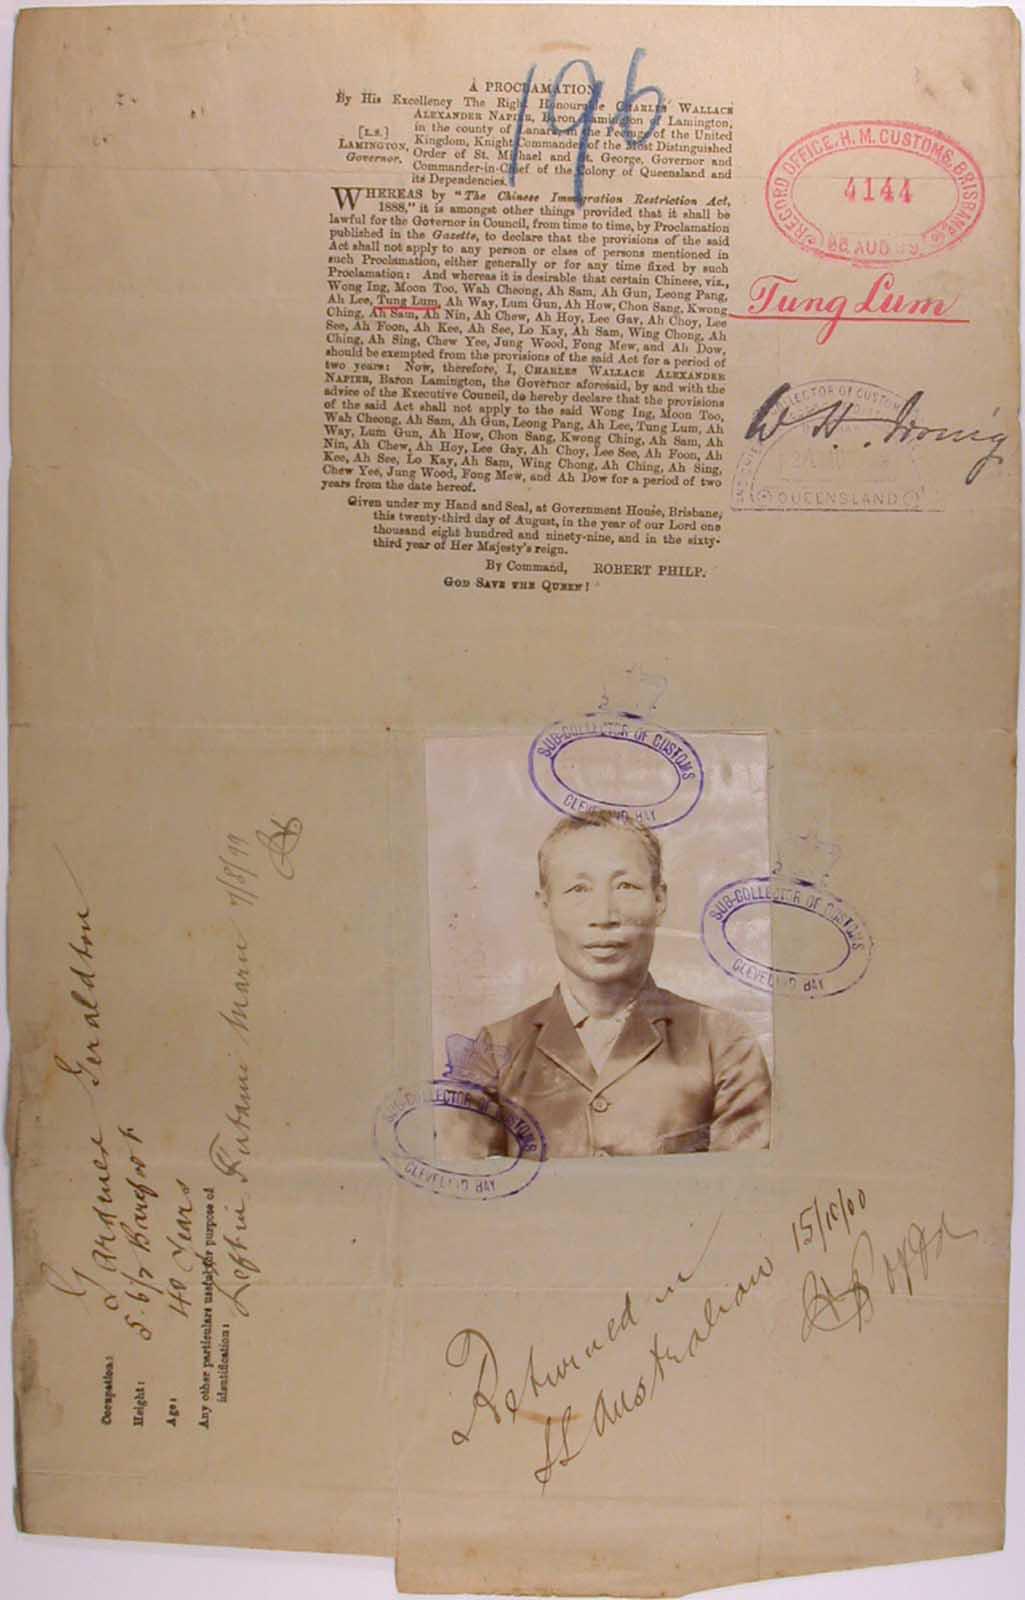 196
A PROCLAMATION
By His Excellency The Right Honourable CHARLES WALLACE
ALEXANDER NAPIER, Baron Lamington of Lamington,
in the county of Lanark, in the Peerage of the United
Kingdom, Knight Commander of the Most Distinguished
Order of St. Michael and St. George, Governor and
Commander-in-Chief of the Colony of Queensland and
its Dependencies.
[L.S.]
LAMINGTON,
Governor.
WHEREAS by "The Chinese Immigration Restriction Act,
1888," it is amongst other things provided that it shall be
lawful for the Governor in Council, from time to time, by Proclamation
published in the Gazette, to declare that the provisions of the said
Act shall not apply to any person or class of persons mentioned in
such Proclamation, either generally or for any time fixed by such
Proclamation: And whereas it is desirable that certain Chinese, viz.,
Wong Ing, Moon Too, Wah Cheong, Ah Sam, Ah Gun, Leong Pang,
Ah Lee, Tung Lum, Ah Way, Lum Gun, Ah How, Chon Sang, Kwong
Ching, Ah Sam, Ah Nin, Ah Chew, Ah Hoy, Lee Gay, Ah Choy, Lee
See, Ah Foon, Ah Kee, Ah See, Lo Kay, Ah Sam, Wing Chong, Ah
Ching, Ah Sing, Chew Yee, Jung Wood, Fong Mew, and Ah Dow,
should be exempted from the provisions of the said Act for a period of
two years: Now, therefore, I, CHARLES WALLACE ALEXANDER
NAPIER, Baron Lamington, the Governor aforesaid, by and with the
advice of the Executive Council, do hereby declare that the provisions
of the said Act shall not apply to the said Wong Ing, Moon Too,
Wah Cheong, Ah Sam, Ah Gun, Leong Pang, Ah Lee, Tung Lum, Ah
Way, Lum Gun, Ah How, Chon Sang, Kwong Ching, Ah Sam, Ah
Nin, Ah Chew, Ah Hoy, Lee Gay, Ah Choy, Lee See, Ah Foon, Ah
Kee, Ah See, Lo Kay, Ah Sam, Wing Chong, Ah Ching, Ah Sing,
Chew Yee, Jung Wood, Fong Mew, and Ah Dow for a period of two
years from the date hereof.
Given under my Hand and Seal, at Government House, Brisbane,
this twenty-third day of August, in the year of our Lord one
thousand eight hundred and ninety-nine, and in the sixty-
third year of Her Majesty's reign.
By Command, ROBERT PHILP.
GOD SAVE THE QUEEN!
RECORD OFFICE, H. M. CUSTOMS, BRISBANE
4144
AUG 99
Tung Lum
COLLECTOR OF CUSTOMS
QUEENSLAND
W H
SUB-COLLECTOR OF CUSTOMS
CLEVELAND BAY
SUB-COLLECTOR OF CUSTOMS
CLEVELAND BAY
SUB-COLLECTOR OF CUSTOMS
CLEVELAND BAY
Occupation: Gardner Geraldton
Height: 5.6½ Barefoot
Age: 40 Years
Any other particulars useful for purpose of
identification: Left in Maru 7/8/99
Returned in
SS Australian 15/10/00